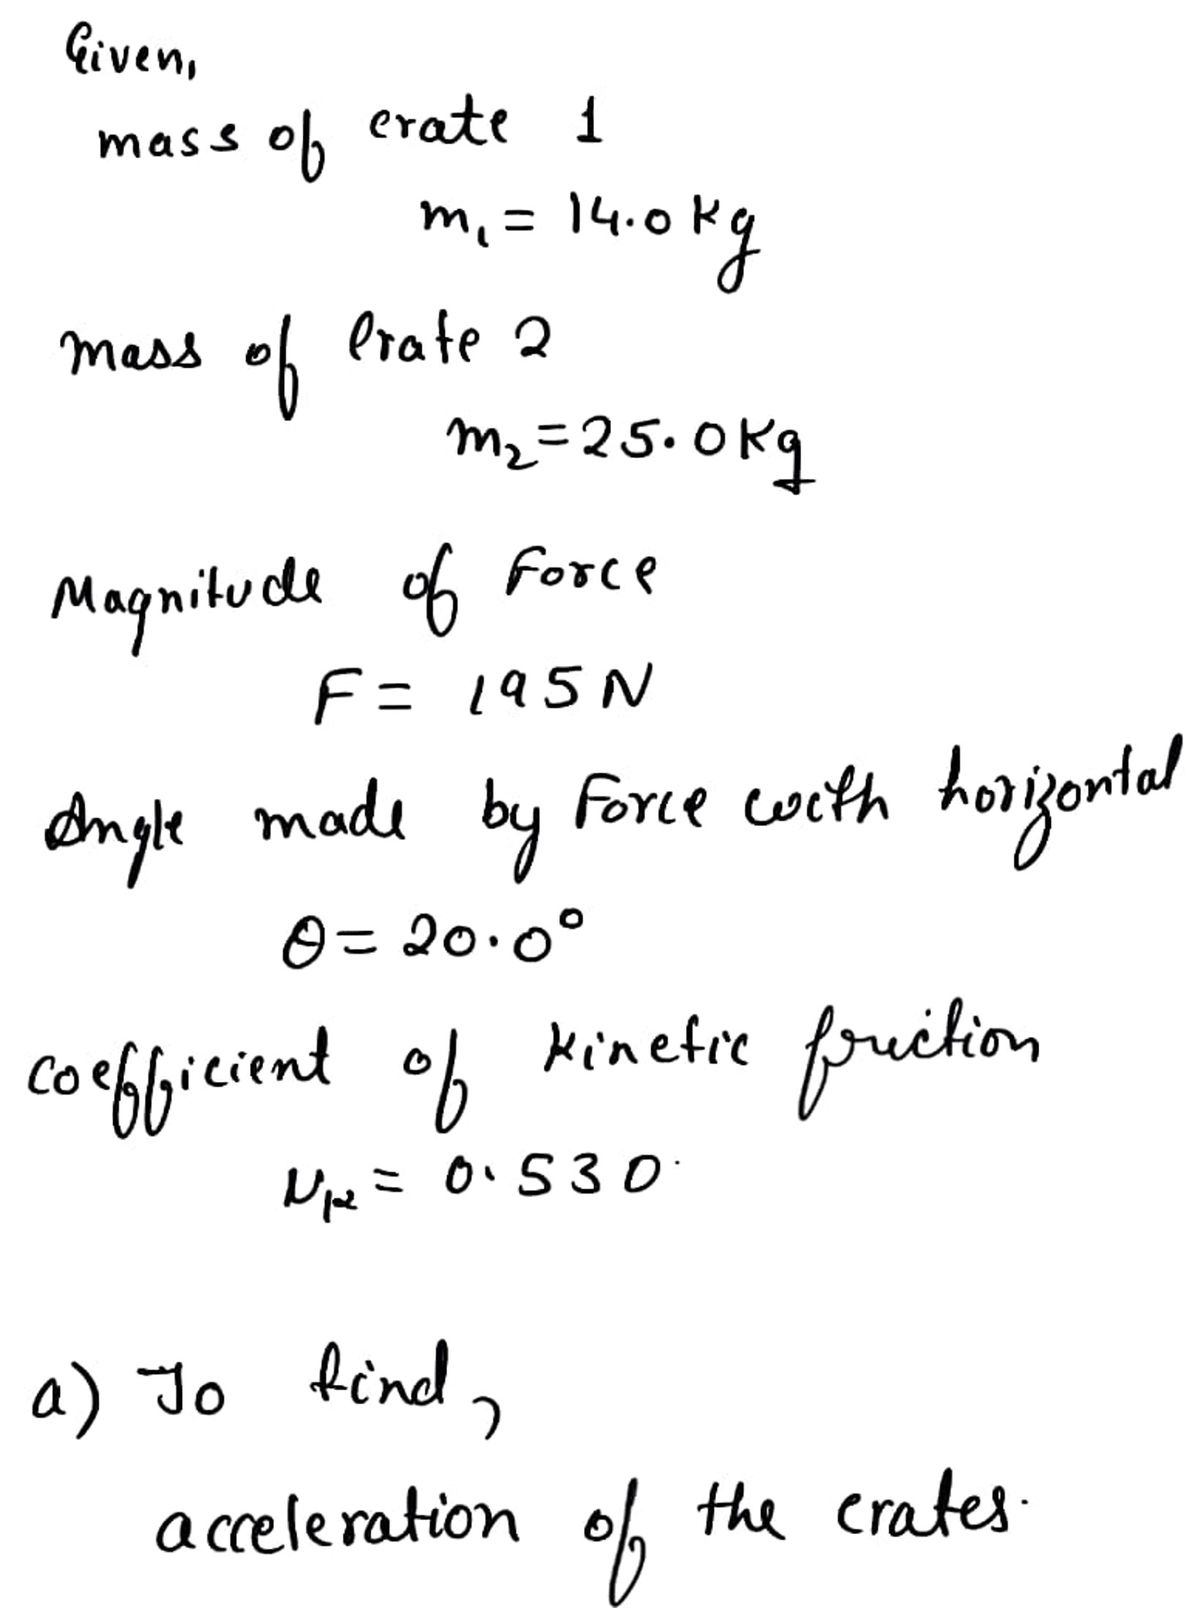 Given,
mass of crate 1
m₁ = 14.0 kg
mass of Crate 2
m₂ = 25.0 kg
Magnitude of Force
F = 195 N
Angle made by Force with horizontal
θ = 20.0°
coefficient of kinetic friction
μₖ = 0.530
a) To find,
acceleration of the crates.